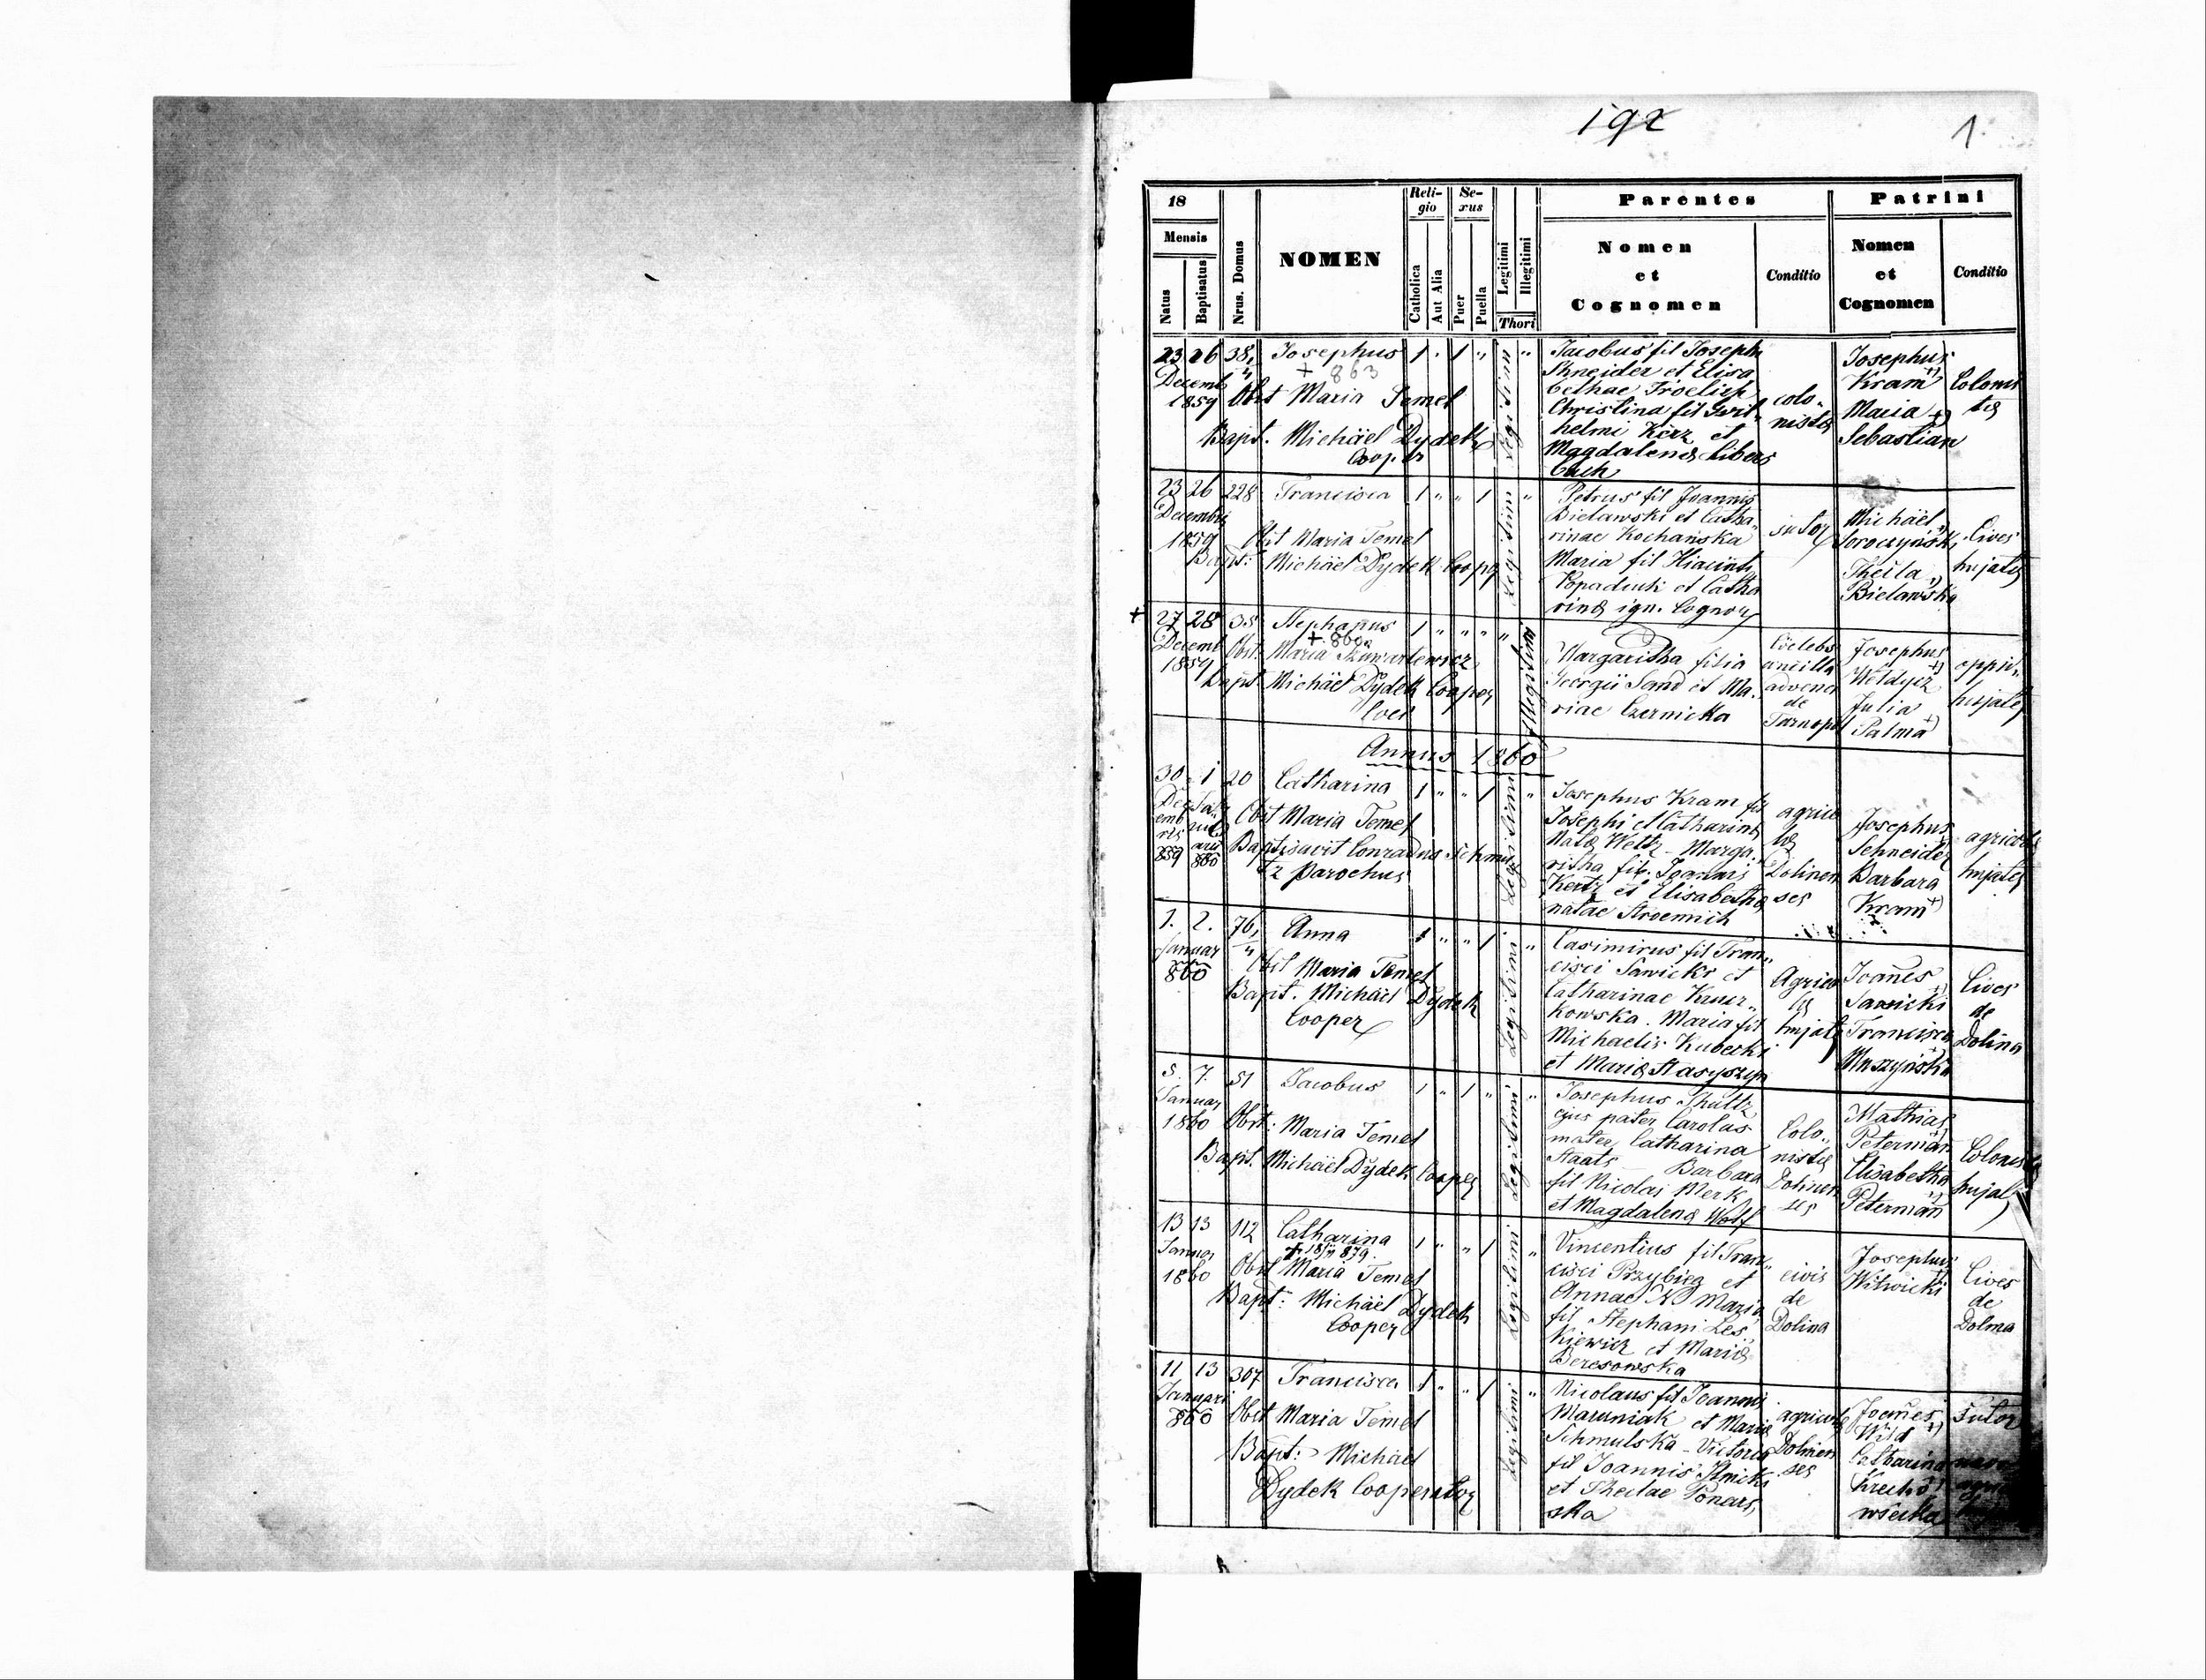 192
1
18
Mensis
Natus
Baptisatus
Nrus. Domus
NOMEN
Reli-
gio
Catholica
Aut Alia
Se-
xus
Puer
Puella
Legitimi
Illegitimi
Thori
Parentes
Nomen
et
Cognomen
Conditio
Patrini
Nomen
et
Cognomen
Conditio
23 26 38,
Decemb
1859
Josephus
+ 863
Obst Maria Temel
Bapt. Michäel Dydek
Cooper
1 " 1 "
Legitimi "
Jacobus fil Joseph
Shneider et Elisa
bethae Froelich
Christina fil Wil-
helmi Kerz et
Magdalena Libers
bach
colo-
nista
Josephus
Kram +)
Maria +)
Sebastian
Colonis
ta
23 26 228
Decembris
1859
Francisca
Obst Maria Temel
Bapt: Michäel Dydek Cooper
1 " " 1
Legitimi "
Petrus fil Joannis
Bielawski et Catha-
rinae Kochańska
Maria fil Hiacinti
Popadiuk et Catha
rina ign. Cognom
sutor
Michäel
Soroczyński
Thecla
Bielawska
Cives
hujates
+
27 28 38
Decemb
1859
Stephanus
+ 860
Obst: Maria
Bapt Michäel Dydek Cooper
Loci
1 " " " "
Illegitimi
Margaritha filia
Georgii Sand et Ma-
riae Czernicka
Coelebs
ancilla
advena
de
Tarnopol
Josephus
Woldycz +)
Julia
Palma +)
oppid-
hujates
Annus 1860
30 1 20
Dec Ja-
emb nu
ris arii
859 860
Catharina
Obst Maria Temel
Baptisavit Conradus Schmi
tz Parochus
1 " " 1
Legitimi "
Josephus Kram fil
Josephi et Catharina
Nata Weltz - Marga-
ritha fil. Joannis
Kertz et Elisabetha
natae Stroemich
agrico
la
Dolinen
ses
Josephus
Schneider
Barbara
Kram +)
agricola
hujates
1. 2. 76,
Januar
860
Anna
Obst Maria Temel
Bapt. Michäel Dydek
Cooper
1 " " 1
Legitimi "
Casimirus fil Fran-
cisci Sawicki et
Catharinae
kowska. Maria fil
Michaelis Kubecki
et Maria Stasyszyn
Agrico
la
hujates
Joañes
Sawicki
Francisca
Muszyńska
Cives
de
Dolina
5. 7. 51
Januar
1860
Jacobus
Obst: Maria Temel
Bapt. Michäel Dydek Cooper
1 " 1 "
Legitimi "
Josephus Shultz
ejus pater Carolus
mater Catharina
Staats Barbara
fil Nicolai Merk
et Magdalena Wolf
Colo-
nista
Dolinen
ses
Mathias
Peterman
Elisabetha
Peterman
Colonista
hujat
13 13 112
Januar
1860
Catharina
+ 18/11 879.
Obst Maria Temel
Bapt: Michäel Dydek
Cooper
1 " " 1
Legitimi "
Vincentius fil Fran-
cisci Przybieg et
Annae N Maria
fil Stephani Les-
kiewicz et Maria
Beresowska
civis
de
Dolina
Josephus
Witwicki
Cives
de
Dolina
11 13 307
Januari
860
Francisca
Obst Maria Temel
Bapt: Michäel
Dydek Cooperator
1 " " 1
Legitimi "
Nicolaus fil Joannis
Maruniak et Maria
Schmulska - Victoria
fil Joannis Ilnicki
et Theclae Ponars
ska
agricola
Dolinen
ses
Joañes
Wild +)
Catharina
Sutor